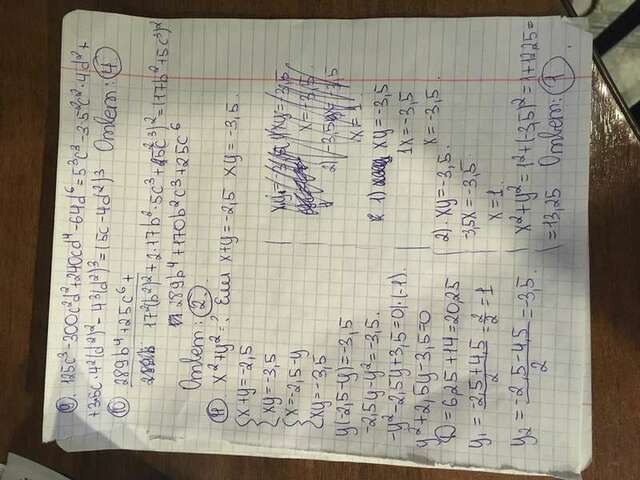 9. 125c³-300c²d²+240cd⁴-64d⁶=5³c³-3·5²c²·4d²+
+3·5c·4²(d²)²-4³(d²)³=(5c-4d²)³ Ответ: 4
10. 289b⁴+25c⁶+
17²(b²)²+2·17b²·5c³+(5²c³)²=(17b²+5c³)²
289b⁴+170b²c³+25c⁶
Ответ: 2
11. x²+y²=? Если x+y=-2,5 xy=-3,5.
x+y=-2,5
xy=-3,5
x=-2,5-y
xy=-3,5
y(-2,5-y)=-3,5
-2,5y-y²=-3,5.
-y²-2,5y+3,5=0|·(-1).
y²+2,5y-3,5=0
D=6,25+14=20,25
y₁=(-2,5+4,5)/2=2/2=1
y₂=(-2,5-4,5)/2=-3,5.
1) xy=-3,5
1x=-3,5
x=-3,5.
2). xy=-3,5.
-3,5x=-3,5.
x=1.
x²+y²=1²+(-3,5)²=1+12,25=
=13,25 Ответ: 1.